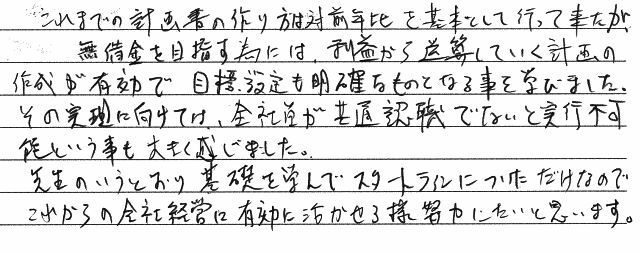 これまでの計画書の作り方は対前年比を基本として行って来たが、
無借金を目指す為には、利益から逆算していく計画の
作成が有効で目標設定も明確なものとなる事を学びました。
その実現に向けては、全社員が共通認職でないと実行不可
能という事も大きく感じました。
先生のいうとおり基礎を学んでスタートラインについただけなので
これからの会社経営に有効に活かせる様努力したいと思います。